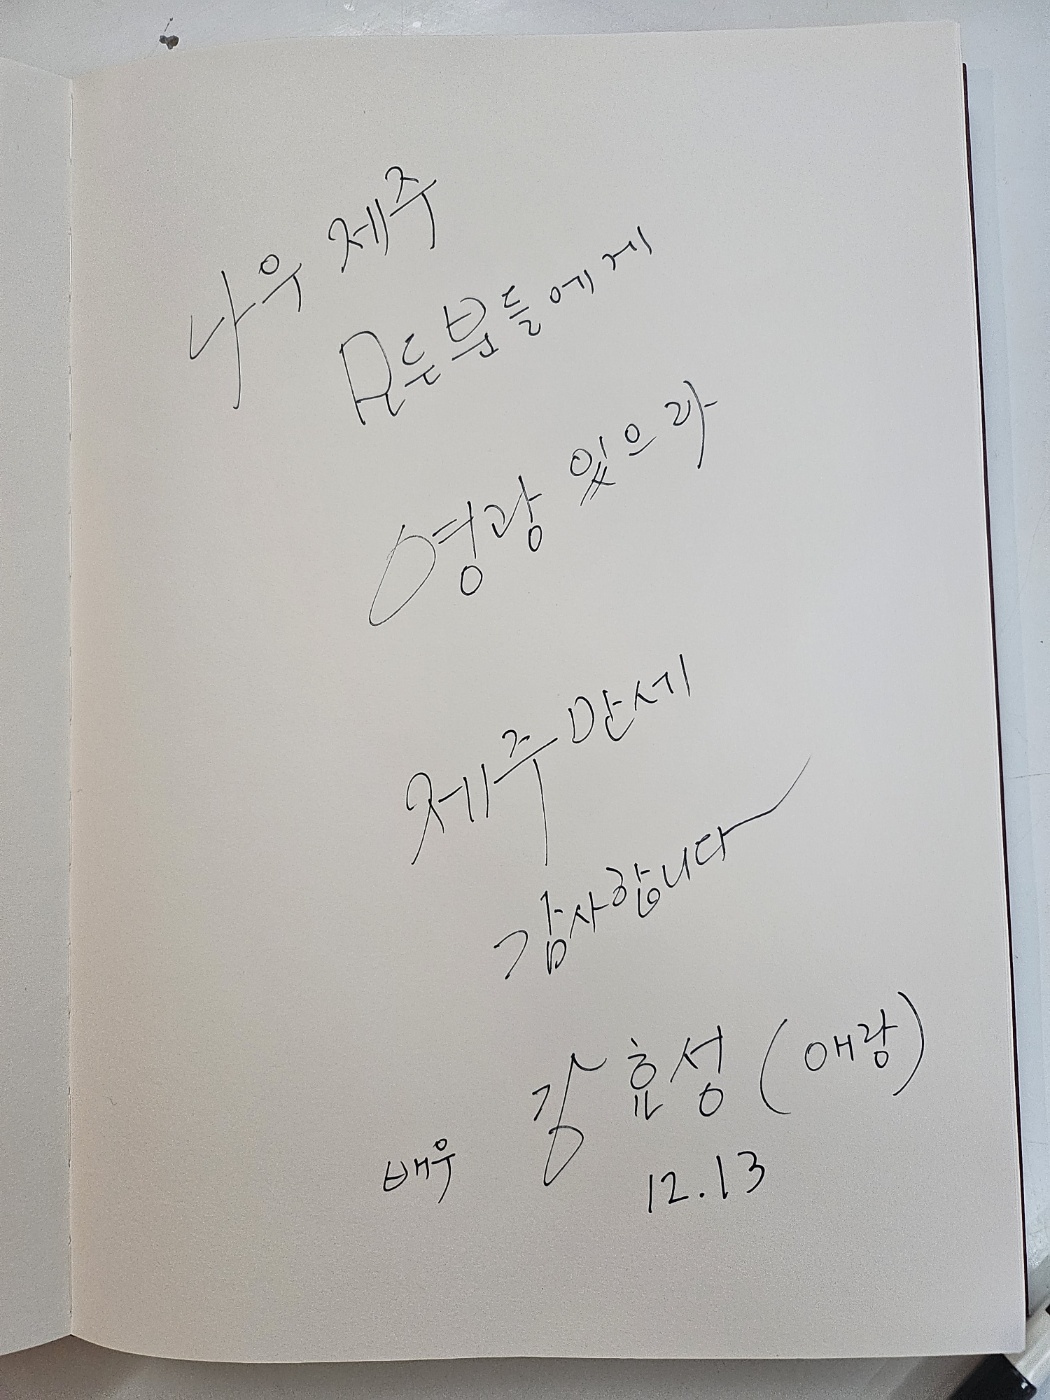 나우 제주
모든 분들에게
영광 있으라
제주 만세
감사합니다
강효성 (애랑)
배우
12.13